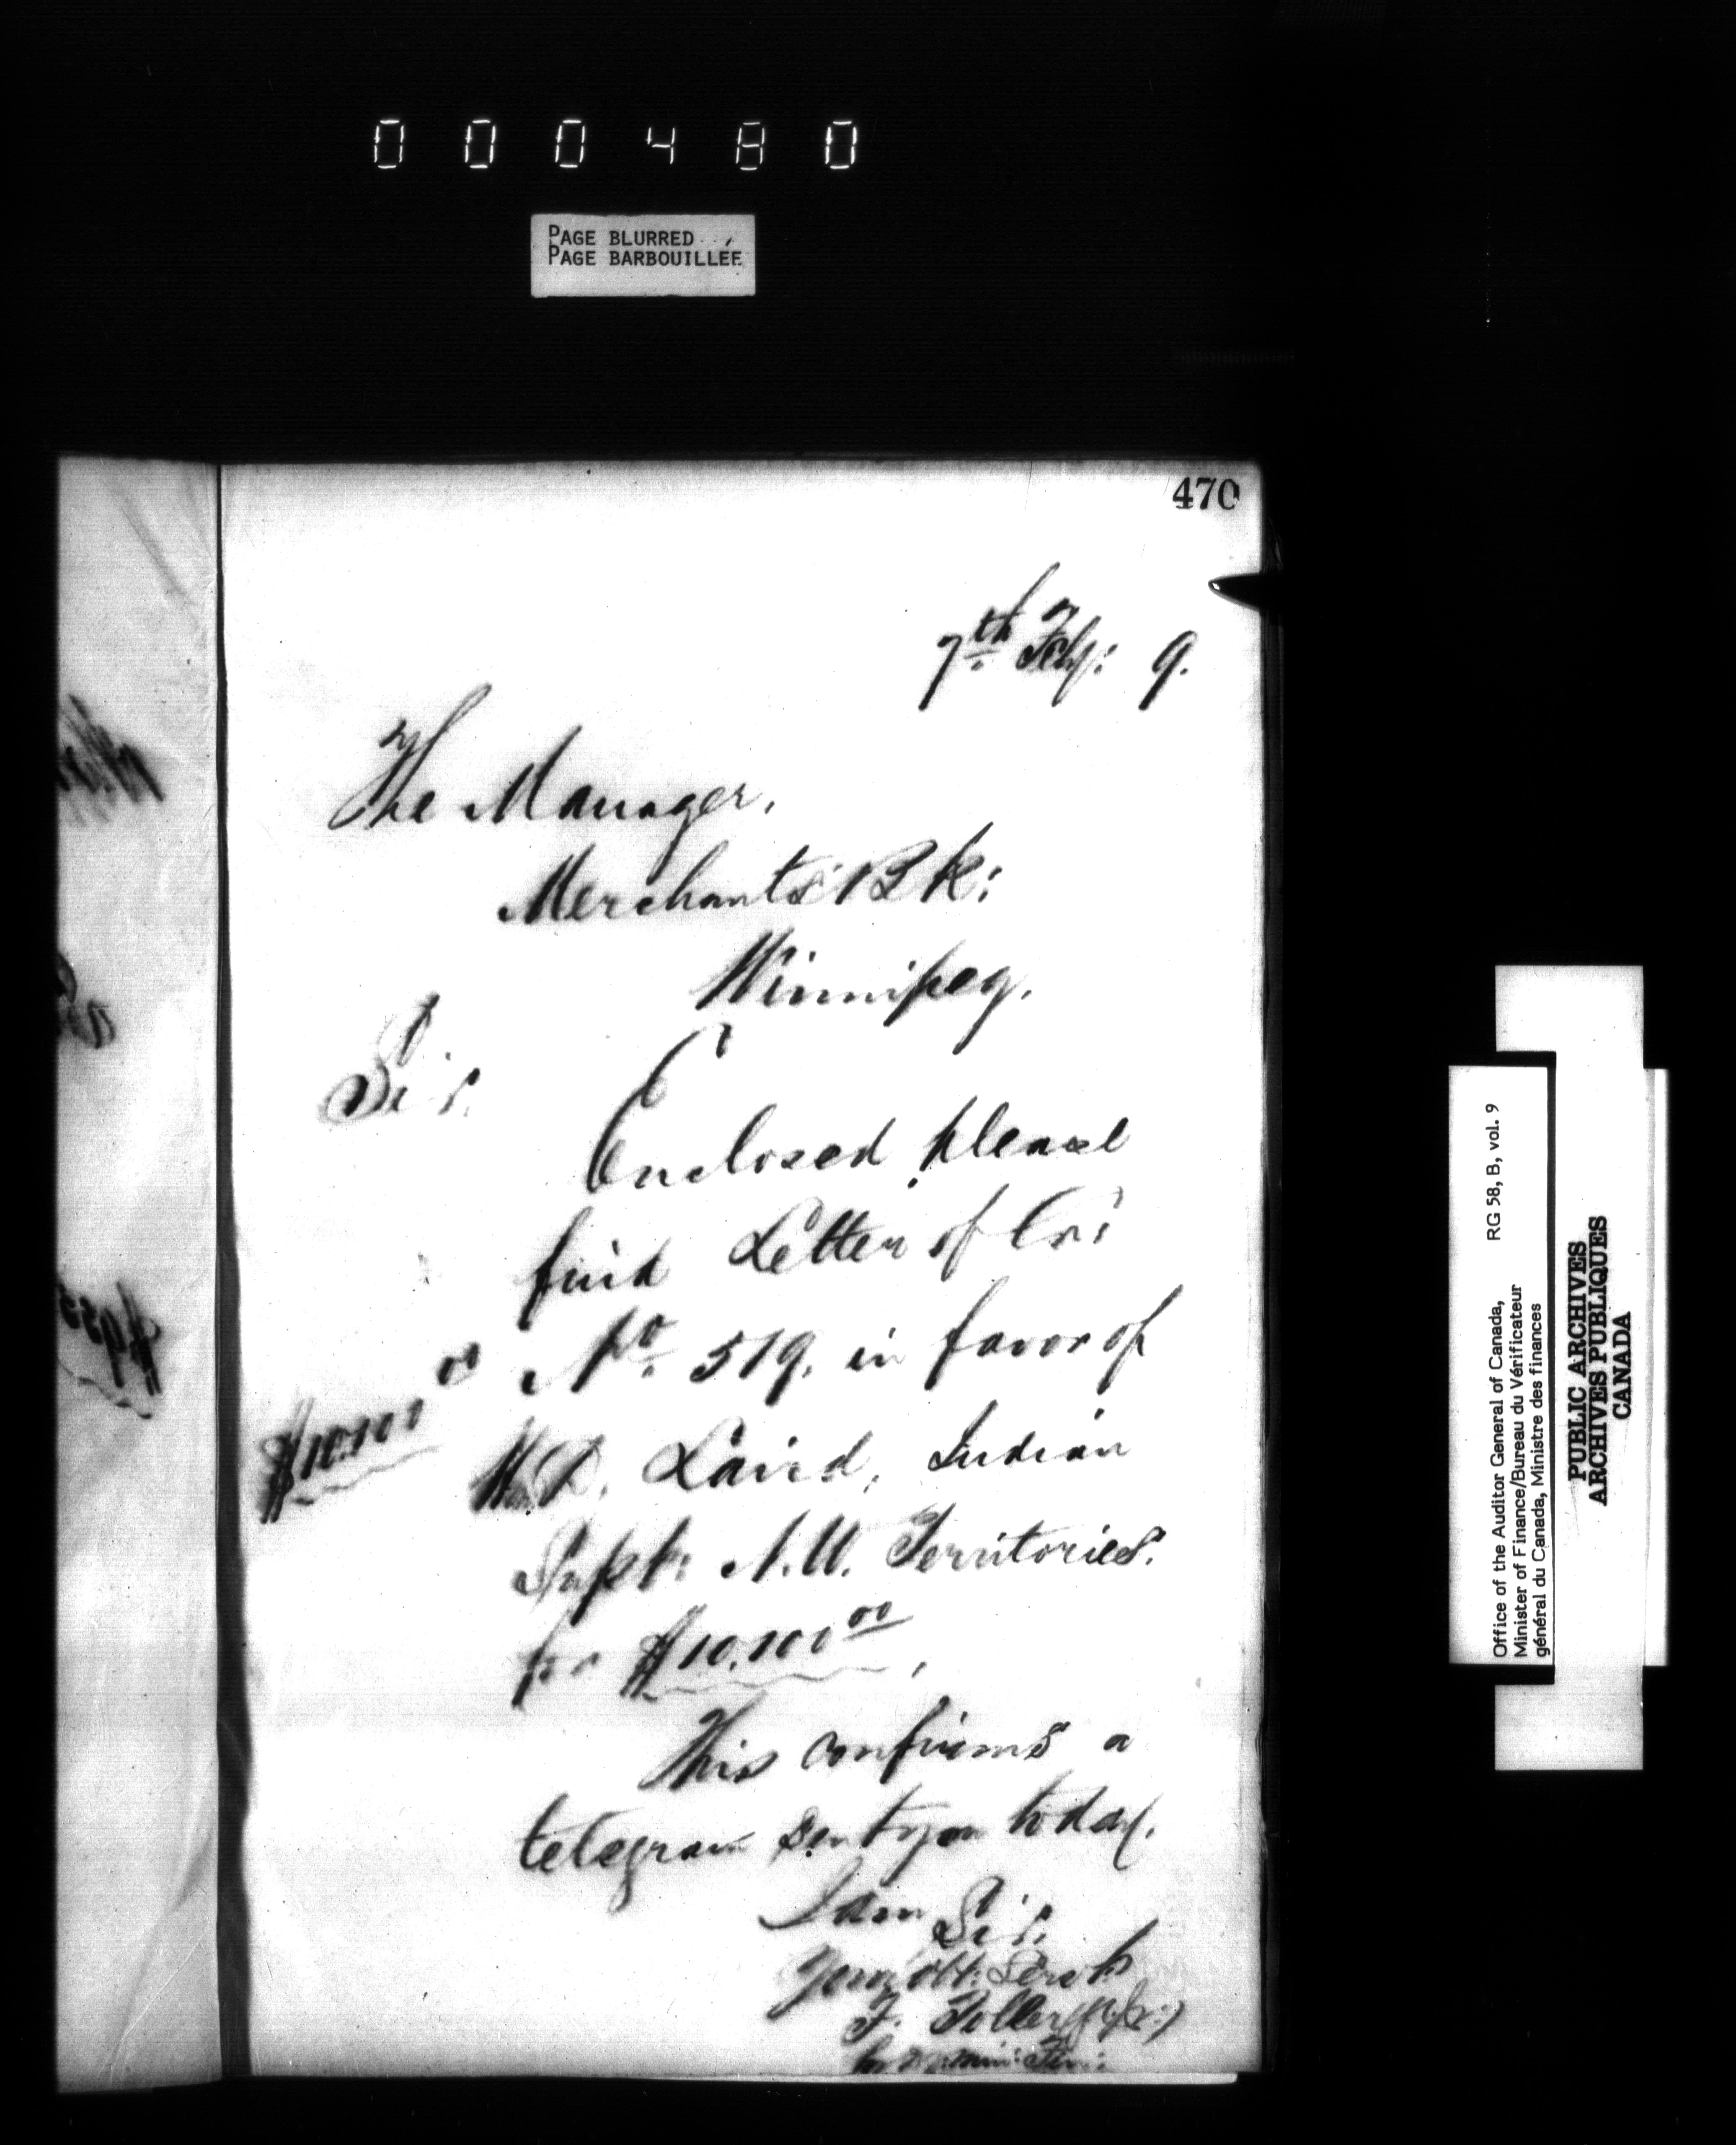 000480
PAGE BLURRED
PAGE BARBOUILLÉE
470
7th Feby: 9.
The Manager,
Merchants' Bk:
Winnipeg.
Sir.
Enclosed please
find Letter of Cr:
No. 519, in favor of
$10.100 00
D. Laird, Indian
Supt: N.W. Territories.
for $10.100 00,
This confirms a
telegram sent you today.
I am Sir.
Your obt: Servt:
F. Toller
Min: Fin:
Office of the Auditor General of Canada,
Minister of Finance/Bureau du Vérificateur
général du Canada, Ministre des finances
RG 58, B, vol. 9
PUBLIC ARCHIVES
ARCHIVES PUBLIQUES
CANADA